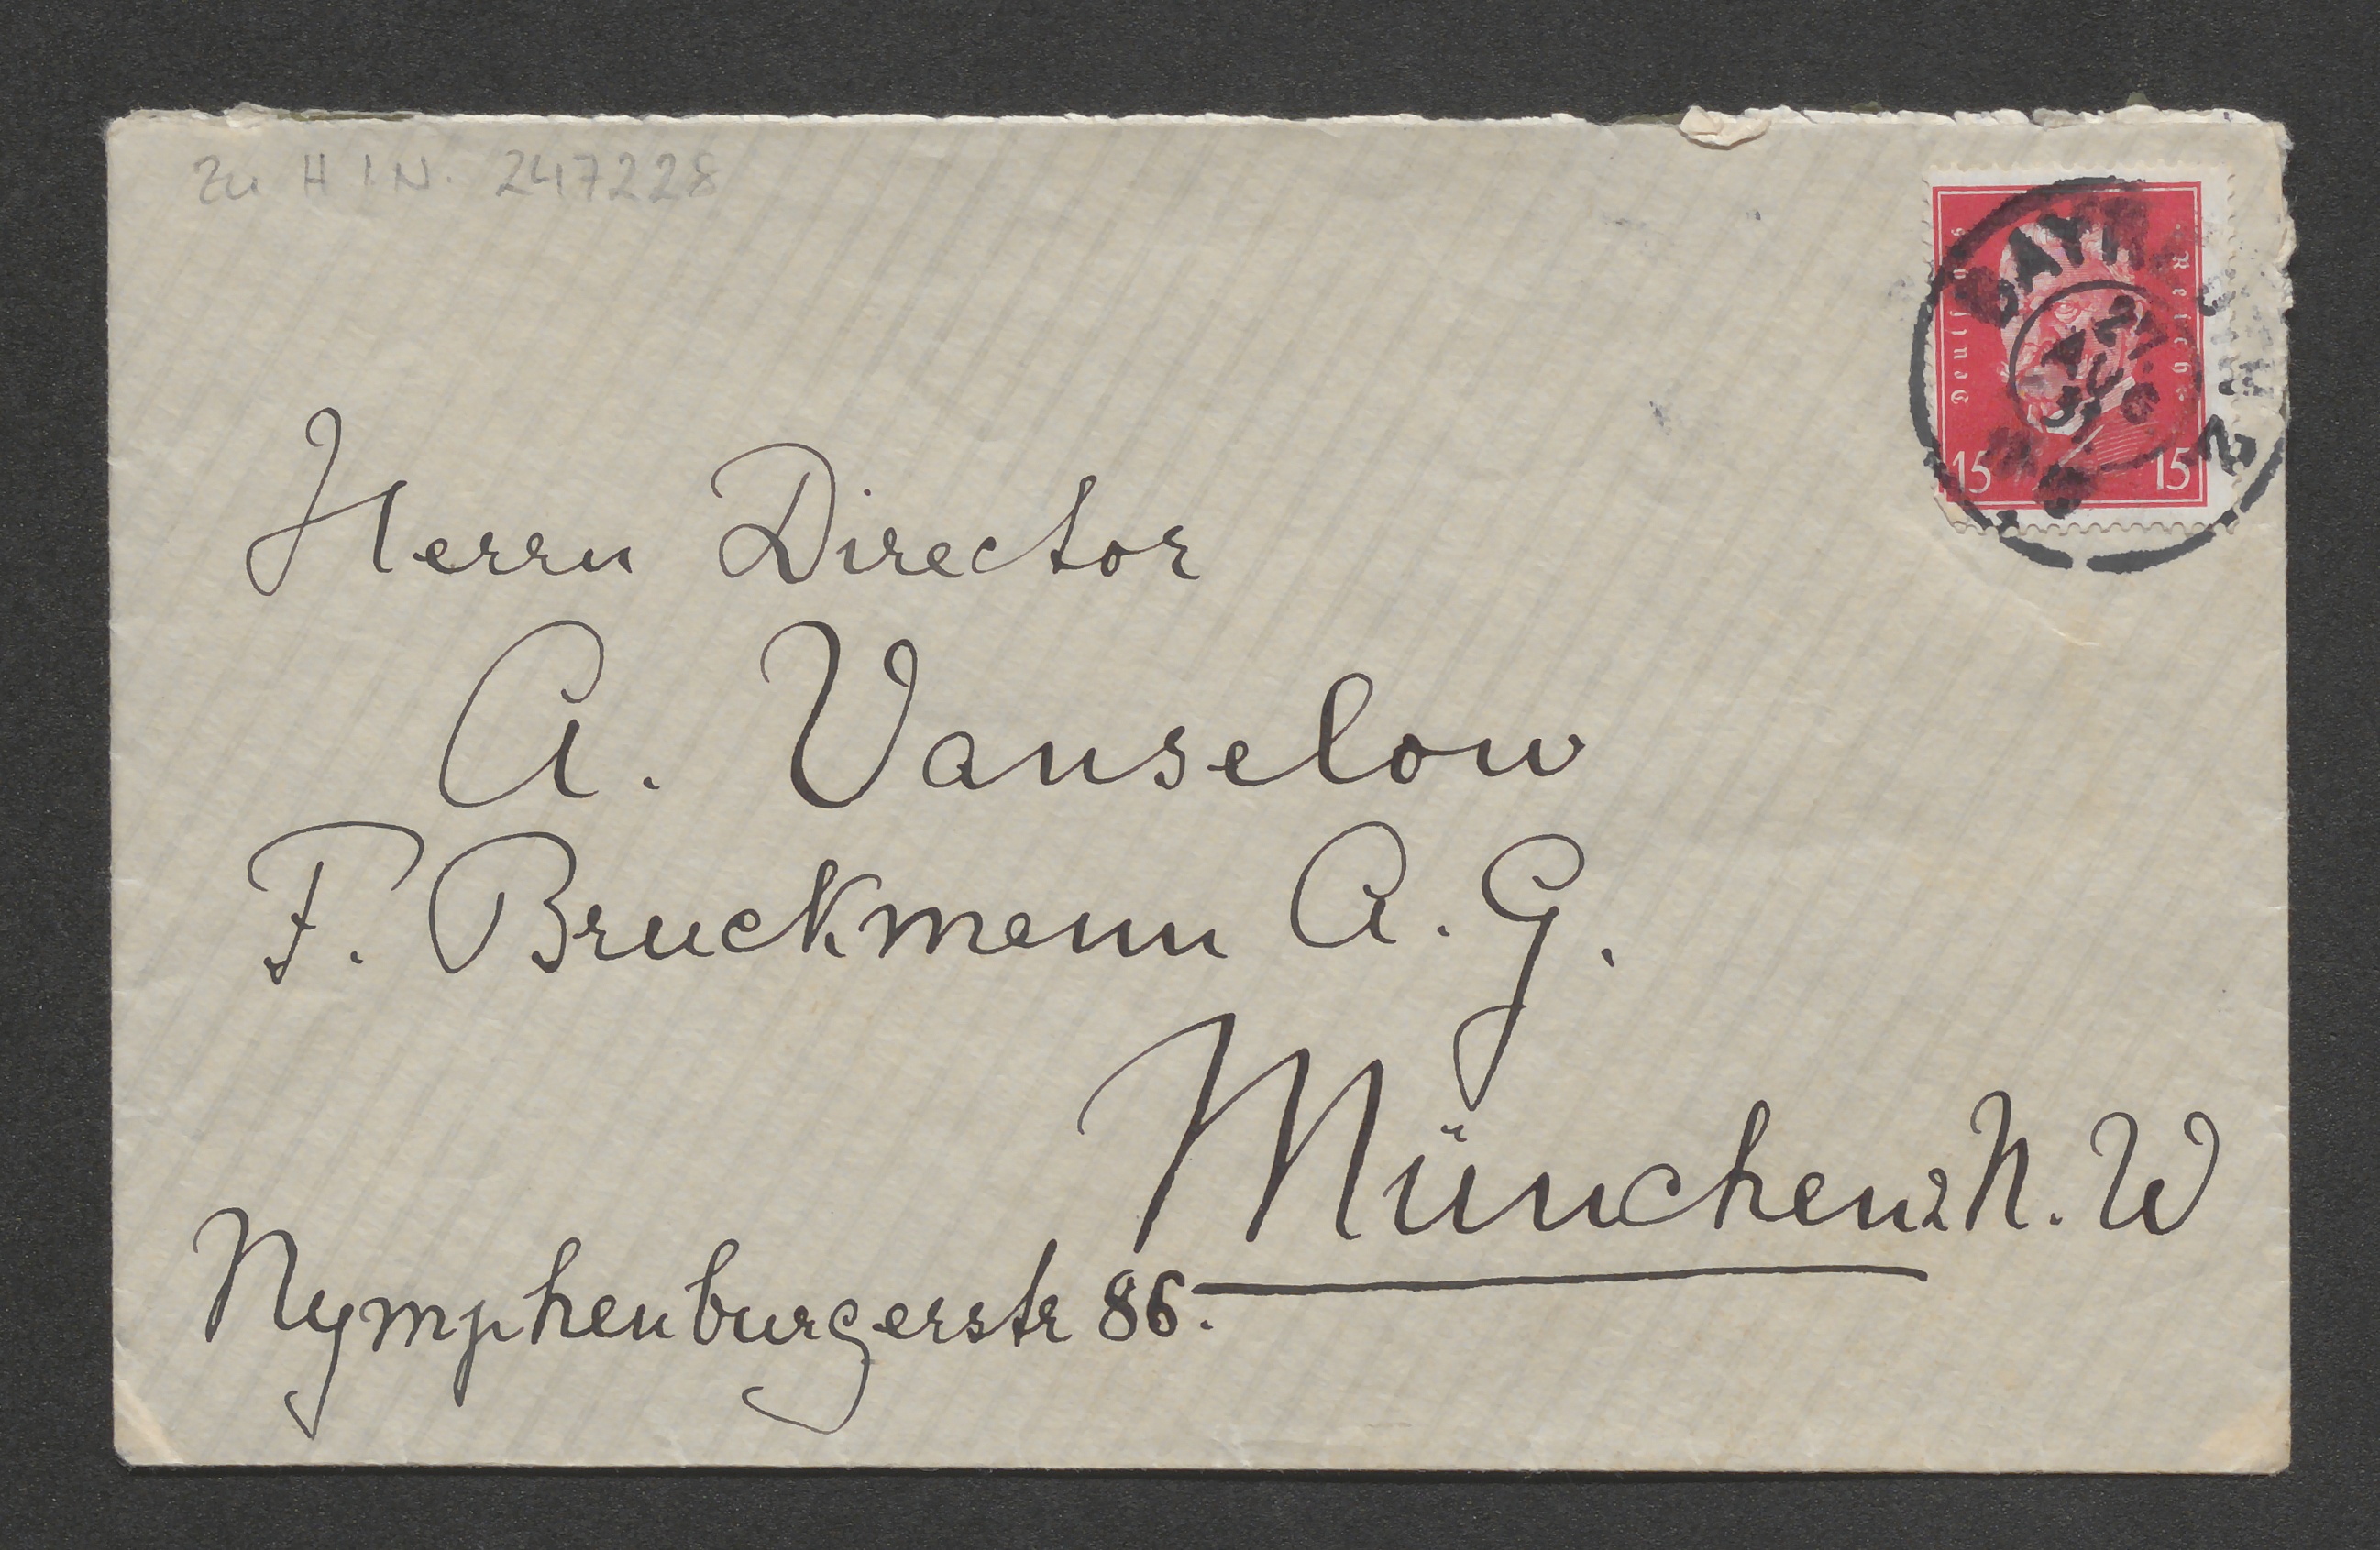 Zu H.I.N. 247228
Deutsches Reich
15 15
27 AUG 31
Herrn Director
A. Vanselow
F. Bruckmann A. G.
München 2 N. W
Nymphenburgerstr 86.